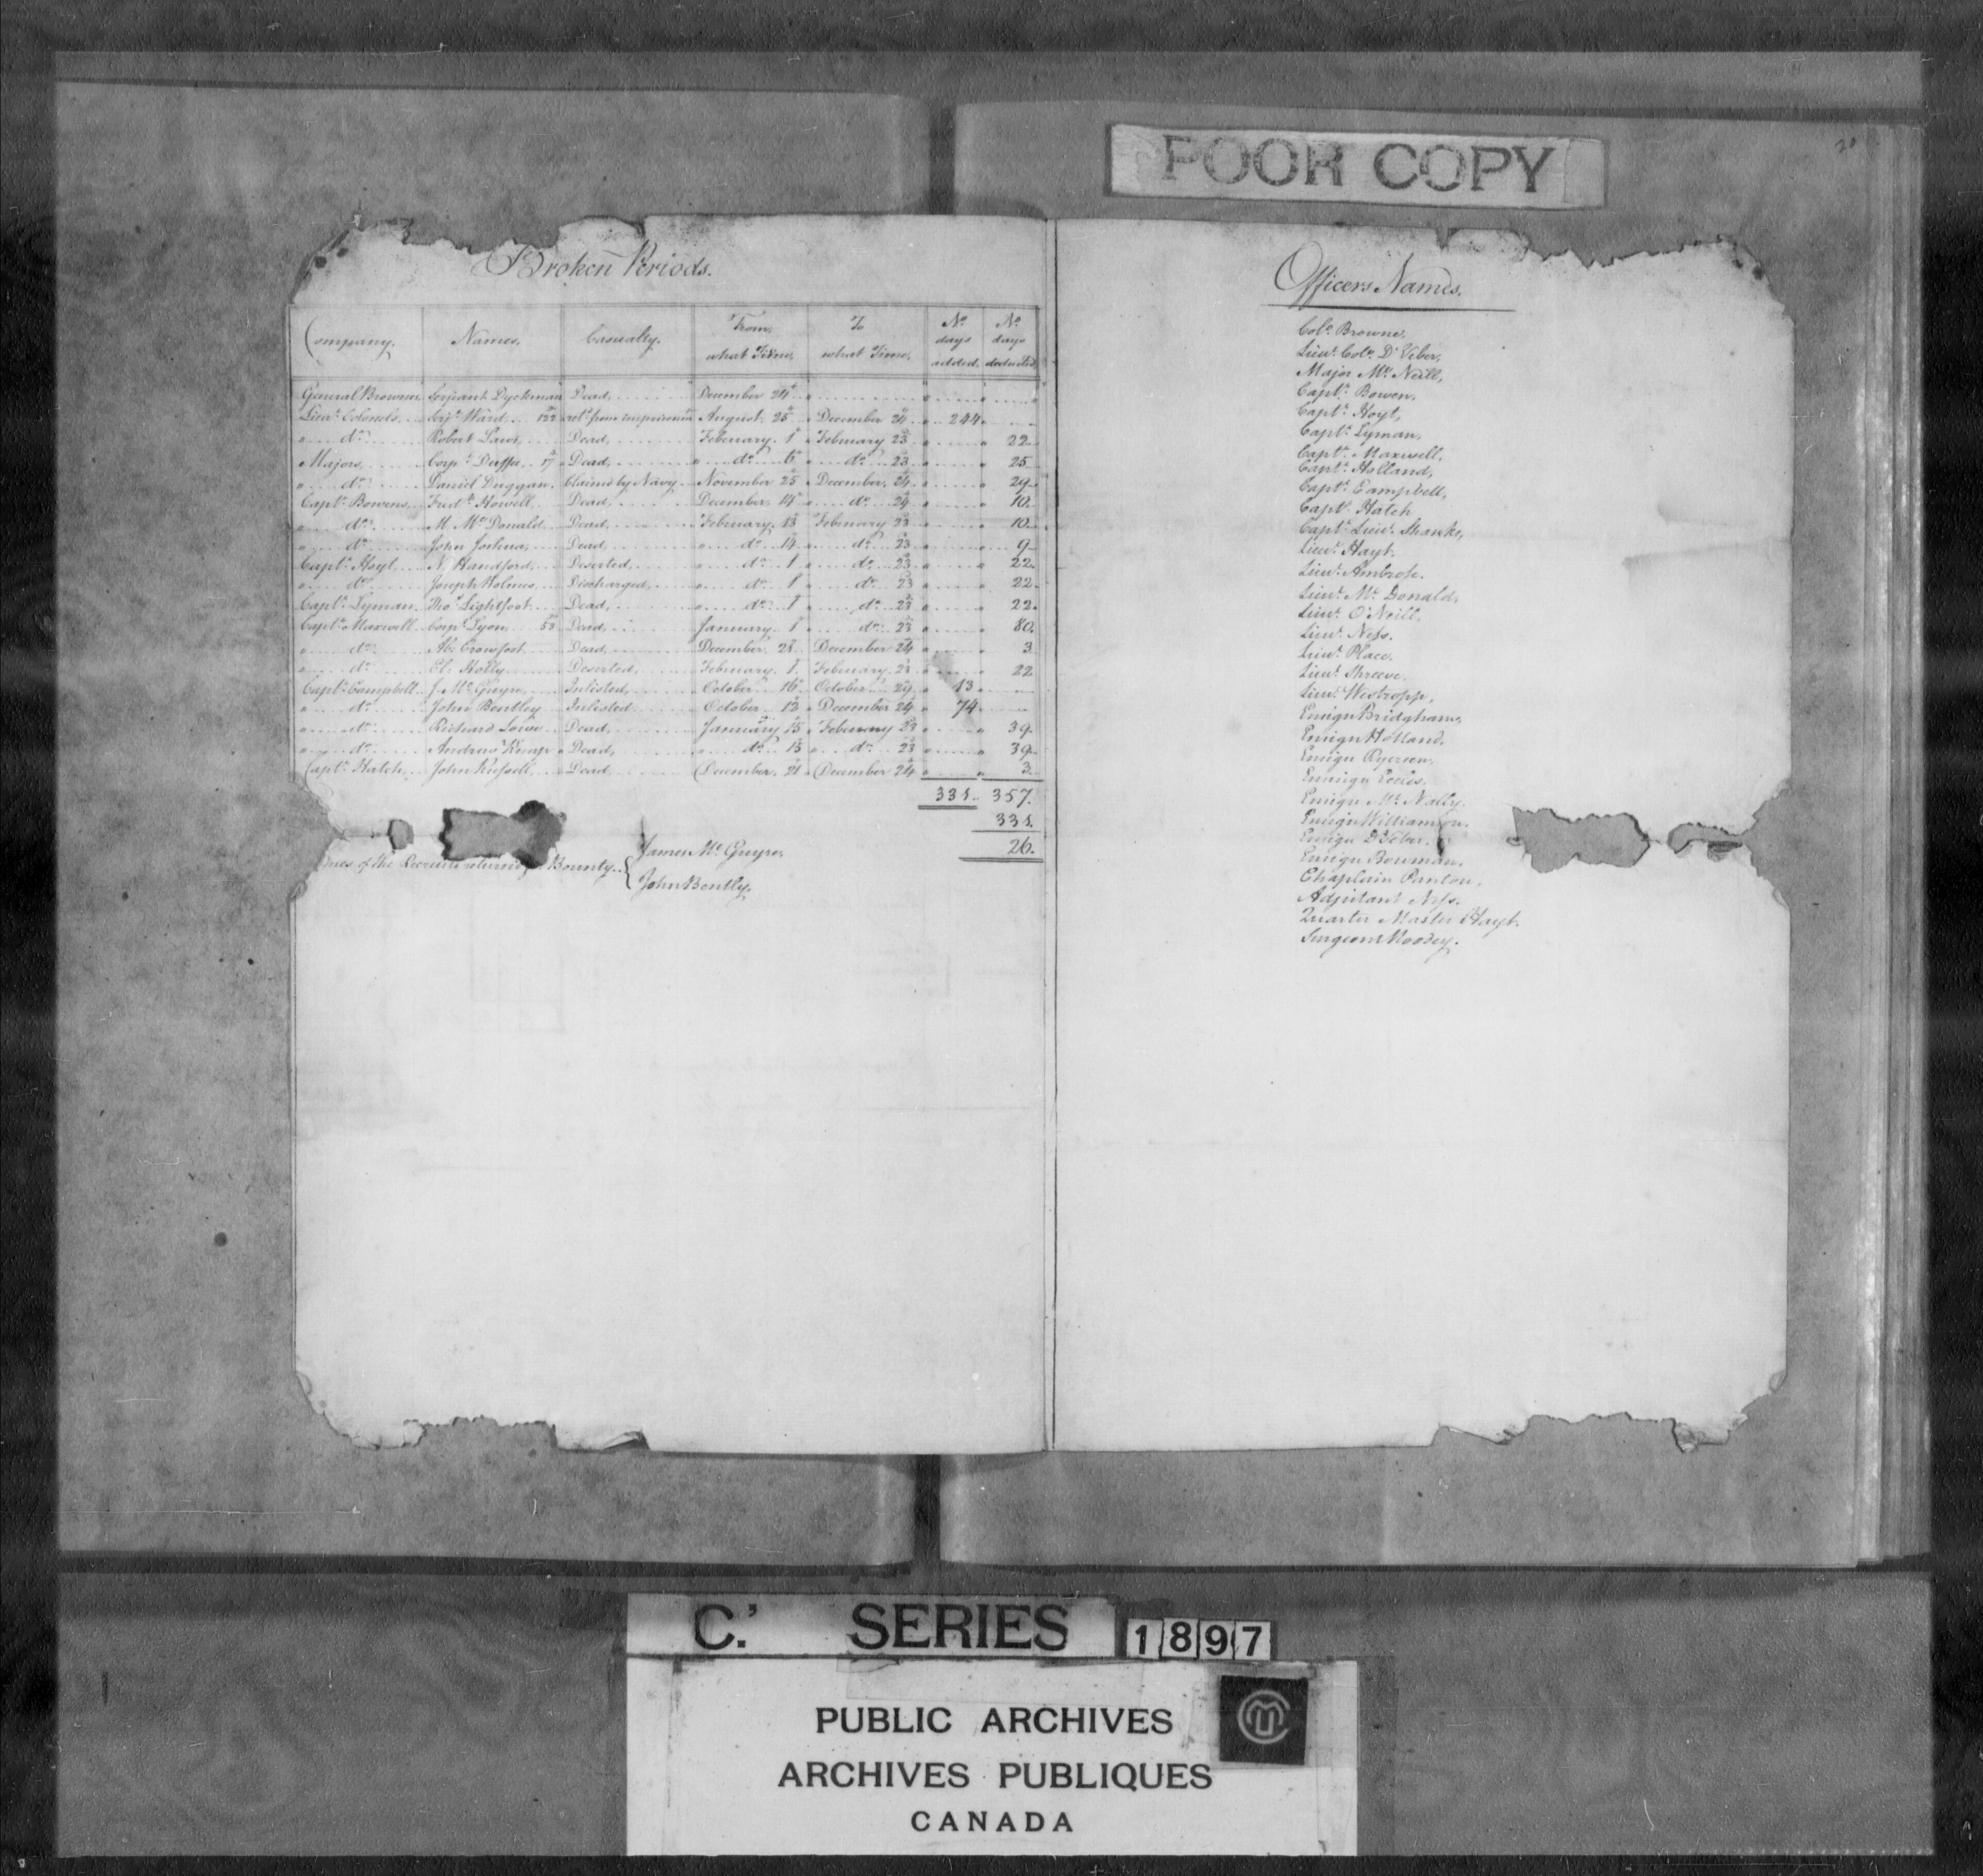 POOR COPY
20
Broken Periods.
Company. Names. Casualty. From what Time, To what Time, No. days added. No. days deducted
General Browne Serjeant Dyckman Dead, December 24
Lieut. Colonels Serjt. Ward 122 retd. from imprisonmt. August 25 December 24 244
do. Robert Laws, Dead, February 1 February 23 22
Majors Corpl. Duffee 17 Dead, do. 6 do. 23 25
do. Daniel Duggan. Claimd by Navy November 25 December 24 29
Capt. Bowens, Fredk. Howell Dead, December 14 do. 24 10
do. M. McDonald Dead, February 13 February 23 10
do. John Joshua, Dead, do. 14 do. 23 9
Capt. Hoyt N. Handford, Deserted, do. 1 do. 23 22
do. Joseph Holmes, Discharged, do. 1 do. 23 22
Capt. Lyman Thos. Lightfoot Dead, do. 1 do. 23 22
Capt. Maxwell Corpl. Lyon 53 Dead, January 1 do. 23 80
do. Ab: Crowfoot Dead, December 21 December 24 3
do. El. Holly Deserted, February 1 February 23 22
Capt. Campbell J. McGuyre, Inlisted, October 16 October 29 13
do. John Bentley Inlisted October 12 December 24 74
do. Richard Dead, January 15 February 23 39
do. Andrew Kemp Dead, do. 15 do. 23 39
Capt. Hatch John Russell, Dead December 21 December 24 3
331 357.
331.
26.
of the Recruits returning Bounty
James McGuyre,
John Bently.
Officers Names.
Colo. Browne,
Lieut. Colo. D'Veber,
Major McNeill,
Capt. Bowen,
Capt. Hoyt,
Capt. Lyman,
Capt. Maxwell,
Capt. Holland,
Capt. Campbell,
Capt. Hatch
Capt. Lieut. Shanks,
Lieut. Hayt.
Lieut. Ambrose.
Lieut. McDonald,
Lieut. O'Neill,
Lieut. Ness.
Lieut. Place.
Lieut. Shreeve.
Lieut. Westropp,
Ensign Bridgham,
Ensign Holland,
Ensign Ryerson,
Ensign Eccles.
Ensign McNally.
Ensign Williamson.
Ensign D'Veber.
Ensign Bowman.
Chaplain Panton,
Adjutant Ness.
Quarter Master Hayt.
Surgeon Moodey.
C.' SERIES 1897
PUBLIC ARCHIVES
ARCHIVES PUBLIQUES
CANADA